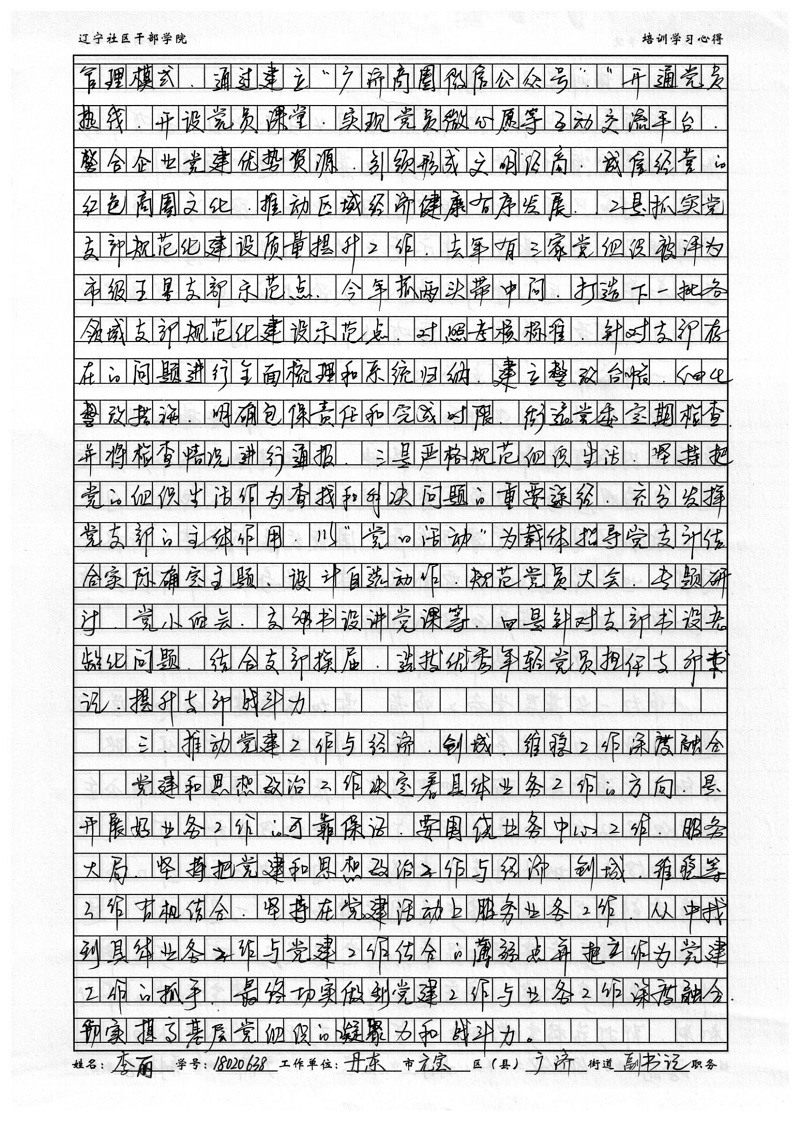 辽宁社区干部学院 培训学习心得
管理模式。通过建立"广济商圈微信公众号"、"开通党员
热线、开设党员课堂、实现党员微心愿等互动交流平台,
整合企业党建优势资源,引领形成文明经商,诚信经营的
红色商圈文化,推动区域经济健康有序发展。二是抓实党
支部规范化建设质量提升工作,去年有三家党组织被评为
市级五星支部示范点,今年抓两头带中间,打造下一批各
领域支部规范化建设示范点,对照考核标准,针对支部存
在的问题进行全面梳理和系统归纳,建立整改台帐,细化
整改措施,明确包保责任和完成时限,街道党委定期检查,
并将检查情况进行通报。三是严格规范组织生活,坚持把
党的组织生活作为查找和解决问题的重要途径,充分发挥
党支部的主体作用,以"党的活动"为载体指导党支部结
合实际确定主题、设计自选动作,规范党员大会、专题研
讨、党小组会、支部书记讲党课等。四是针对支部书记老
龄化问题,结合支部换届,选拔优秀年轻党员担任支部书
记,提升支部战斗力。
三、推动党建工作与经济、创城、维稳工作深度融合
党建和思想政治工作决定着具体业务工作的方向,是
开展好业务工作的可靠保证,要围绕业务中心工作,服务
大局,坚持把党建和思想政治工作与经济、创城、维稳等
工作有机结合,坚持在党建活动上服务业务工作,从中找
到具体业务工作与党建工作结合的薄弱点并把它作为党建
工作的抓手,最终切实做到党建工作与业务工作深度融合,
切实提高基层党组织的凝聚力和战斗力。
姓名:李丽 学号:18020638 工作单位:丹东 市 元宝 区(县) 广济 街道 副书记 职务